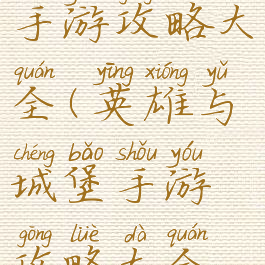 手游攻略大
quán yīng xióng yǔ
全(英雄与
chéng bǎo shǒu yóu
城堡手游
gōng lüè dà quán
攻略大全